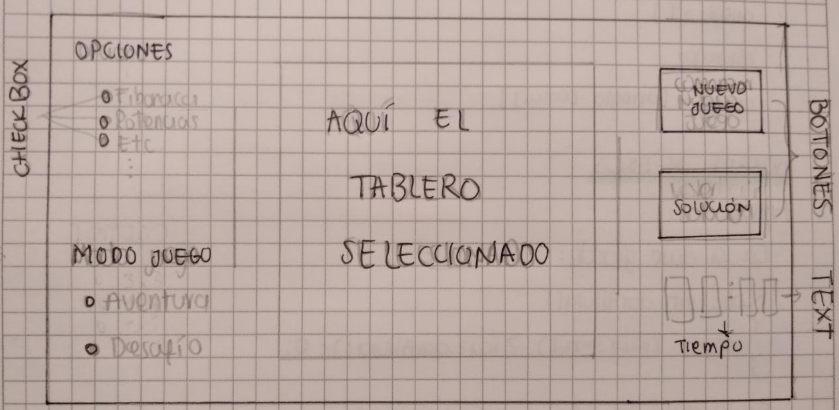 OPCIONES
Fibonacci
Potencias
Etc
CHECKBOX
MODO JUEGO
Aventura
Desafío
AQUÍ EL
TABLERO
SELECCIONADO
NUEVO
JUEGO
SOLUCIÓN
Tiempo
BOTONES
TEXT